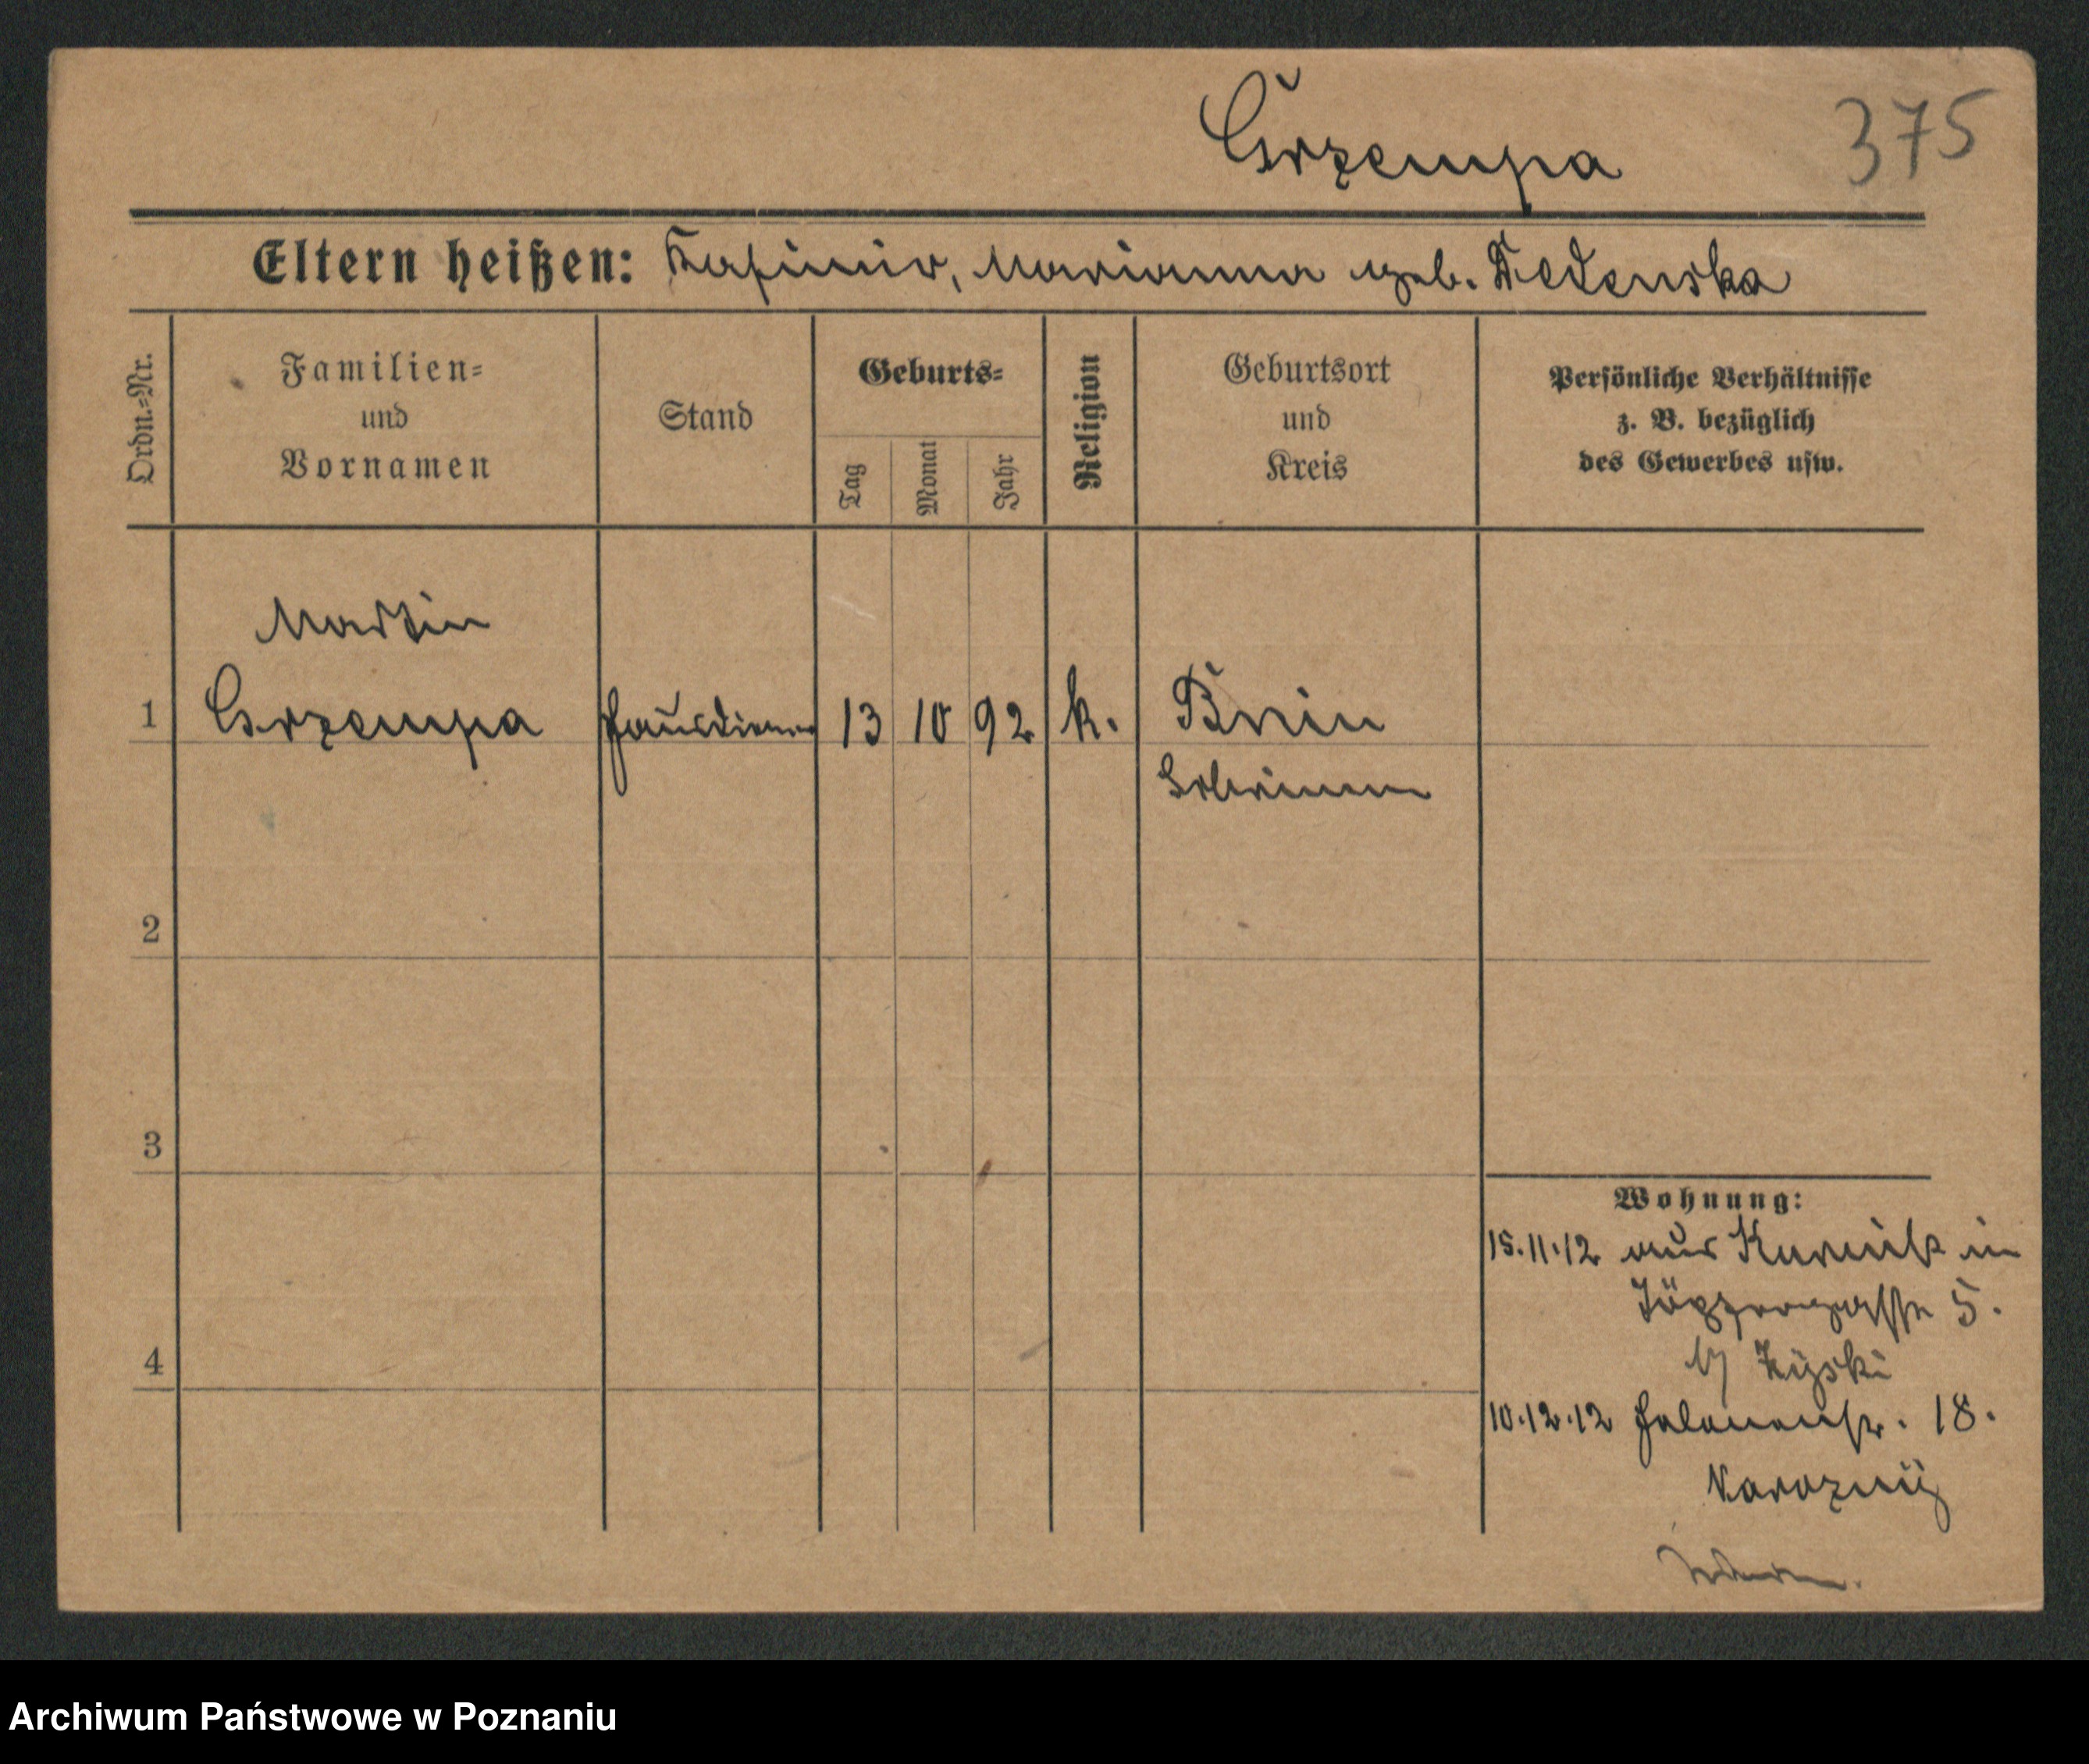 Grzempa
375
Eltern heißen: Kasimir, Marianna geb. Dedenska
Ordn.-Nr.
Familien-
und
Vornamen
Stand
Geburts-
Tag
Monat
Jahr
Religion
Geburtsort
und
Kreis
Persönliche Verhältnisse
z. B. bezüglich
des Gewerbes usw.
Martin
1 Grzempa Hausdiener 13 10 92 k. Bnin
Schrimm
2
3
4
Wohnung:
15.11.12 aus Kurnik in
5.
10.12.12 18.
Archiwum Państwowe w Poznaniu